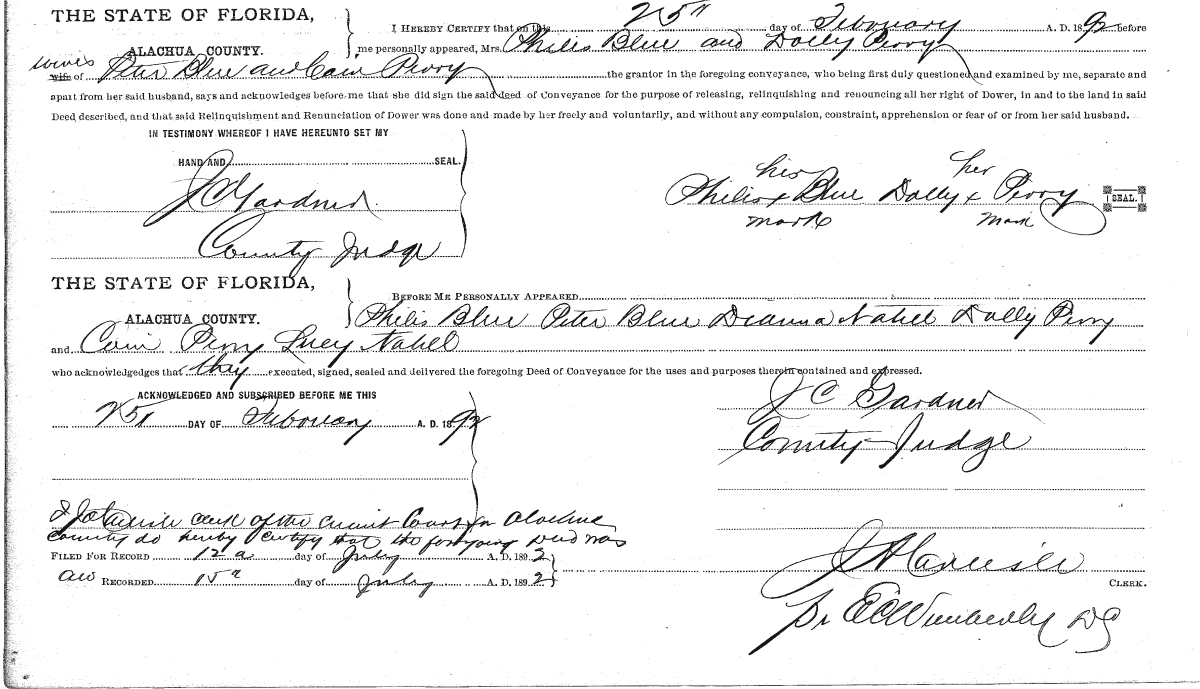 THE STATE OF FLORIDA,
ALACHUA COUNTY.
I HEREBY CERTIFY that on this 25" day of February A. D. 1892 before
me personally appeared, Mrs. Philis Blue and Dolly Perry
wives
wife of Peter Blue and Cain Perry the grantor in the foregoing conveyance, who being first duly questioned and examined by me, separate and
apart from her said husband, says and acknowledges before me that she did sign the said deed of Conveyance for the purpose of releasing, relinquishing and renouncing all her right of Dower, in and to the land in said
Deed described, and that said Relinquishment and Renunciation of Dower was done and made by her freely and voluntarily, and without any compulsion, constraint, apprehension or fear of or from her said husband.
IN TESTIMONY WHEREOF I HAVE HEREUNTO SET MY
HAND AND SEAL.
J C Gardner
County Judge
his her
Philis x Blue Dolly x Perry SEAL.
mark mark
THE STATE OF FLORIDA,
ALACHUA COUNTY.
BEFORE ME PERSONALLY APPEARED
Philis Blue Peter Blue Dianna Dolly Perry
and Cain Perry Lucy
who acknowledgedges that they executed, signed, sealed and delivered the foregoing Deed of Conveyance for the uses and purposes therein contained and expressed.
ACKNOWLEDGED AND SUBSCRIBED BEFORE ME THIS
25" DAY OF February A. D. 1892
J C Gardner
County Judge
I clerk of the Circuit Court for Alachua
County do hereby certify that the foregoing Deed was
FILED FOR RECORD 12" day of July A. D. 1892
and RECORDED 15" day of July A. D. 1892
CLERK.
pr E C Wimberly DC